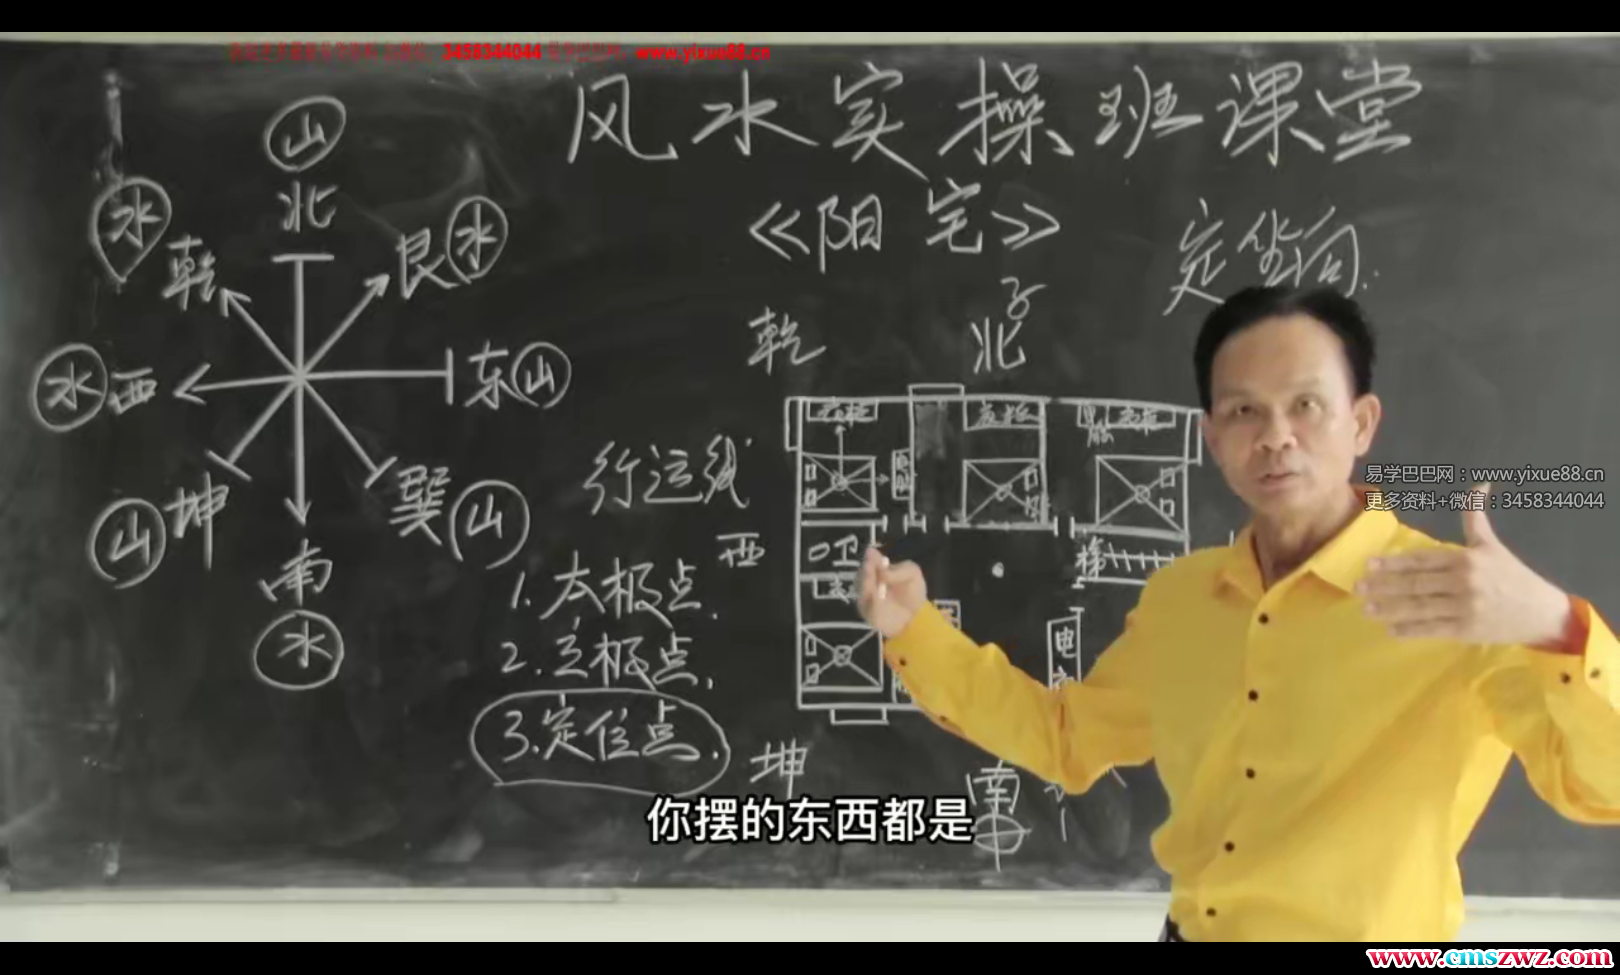 3458344044 www.yixue88.cn
风水实操班课堂
《阳宅》
定坐向.
山
北
水
乾
艮 水
水 西
东 山
山 坤
巽 山
南
水
行运线
1.太极点.
2.立极点.
3.定位点.
乾
子
北
西
坤
南
卫
梯
电
易学巴巴网：www.yixue88.cn
更多资料+微信：3458344044
你摆的东西都是
www.cmszwz.com